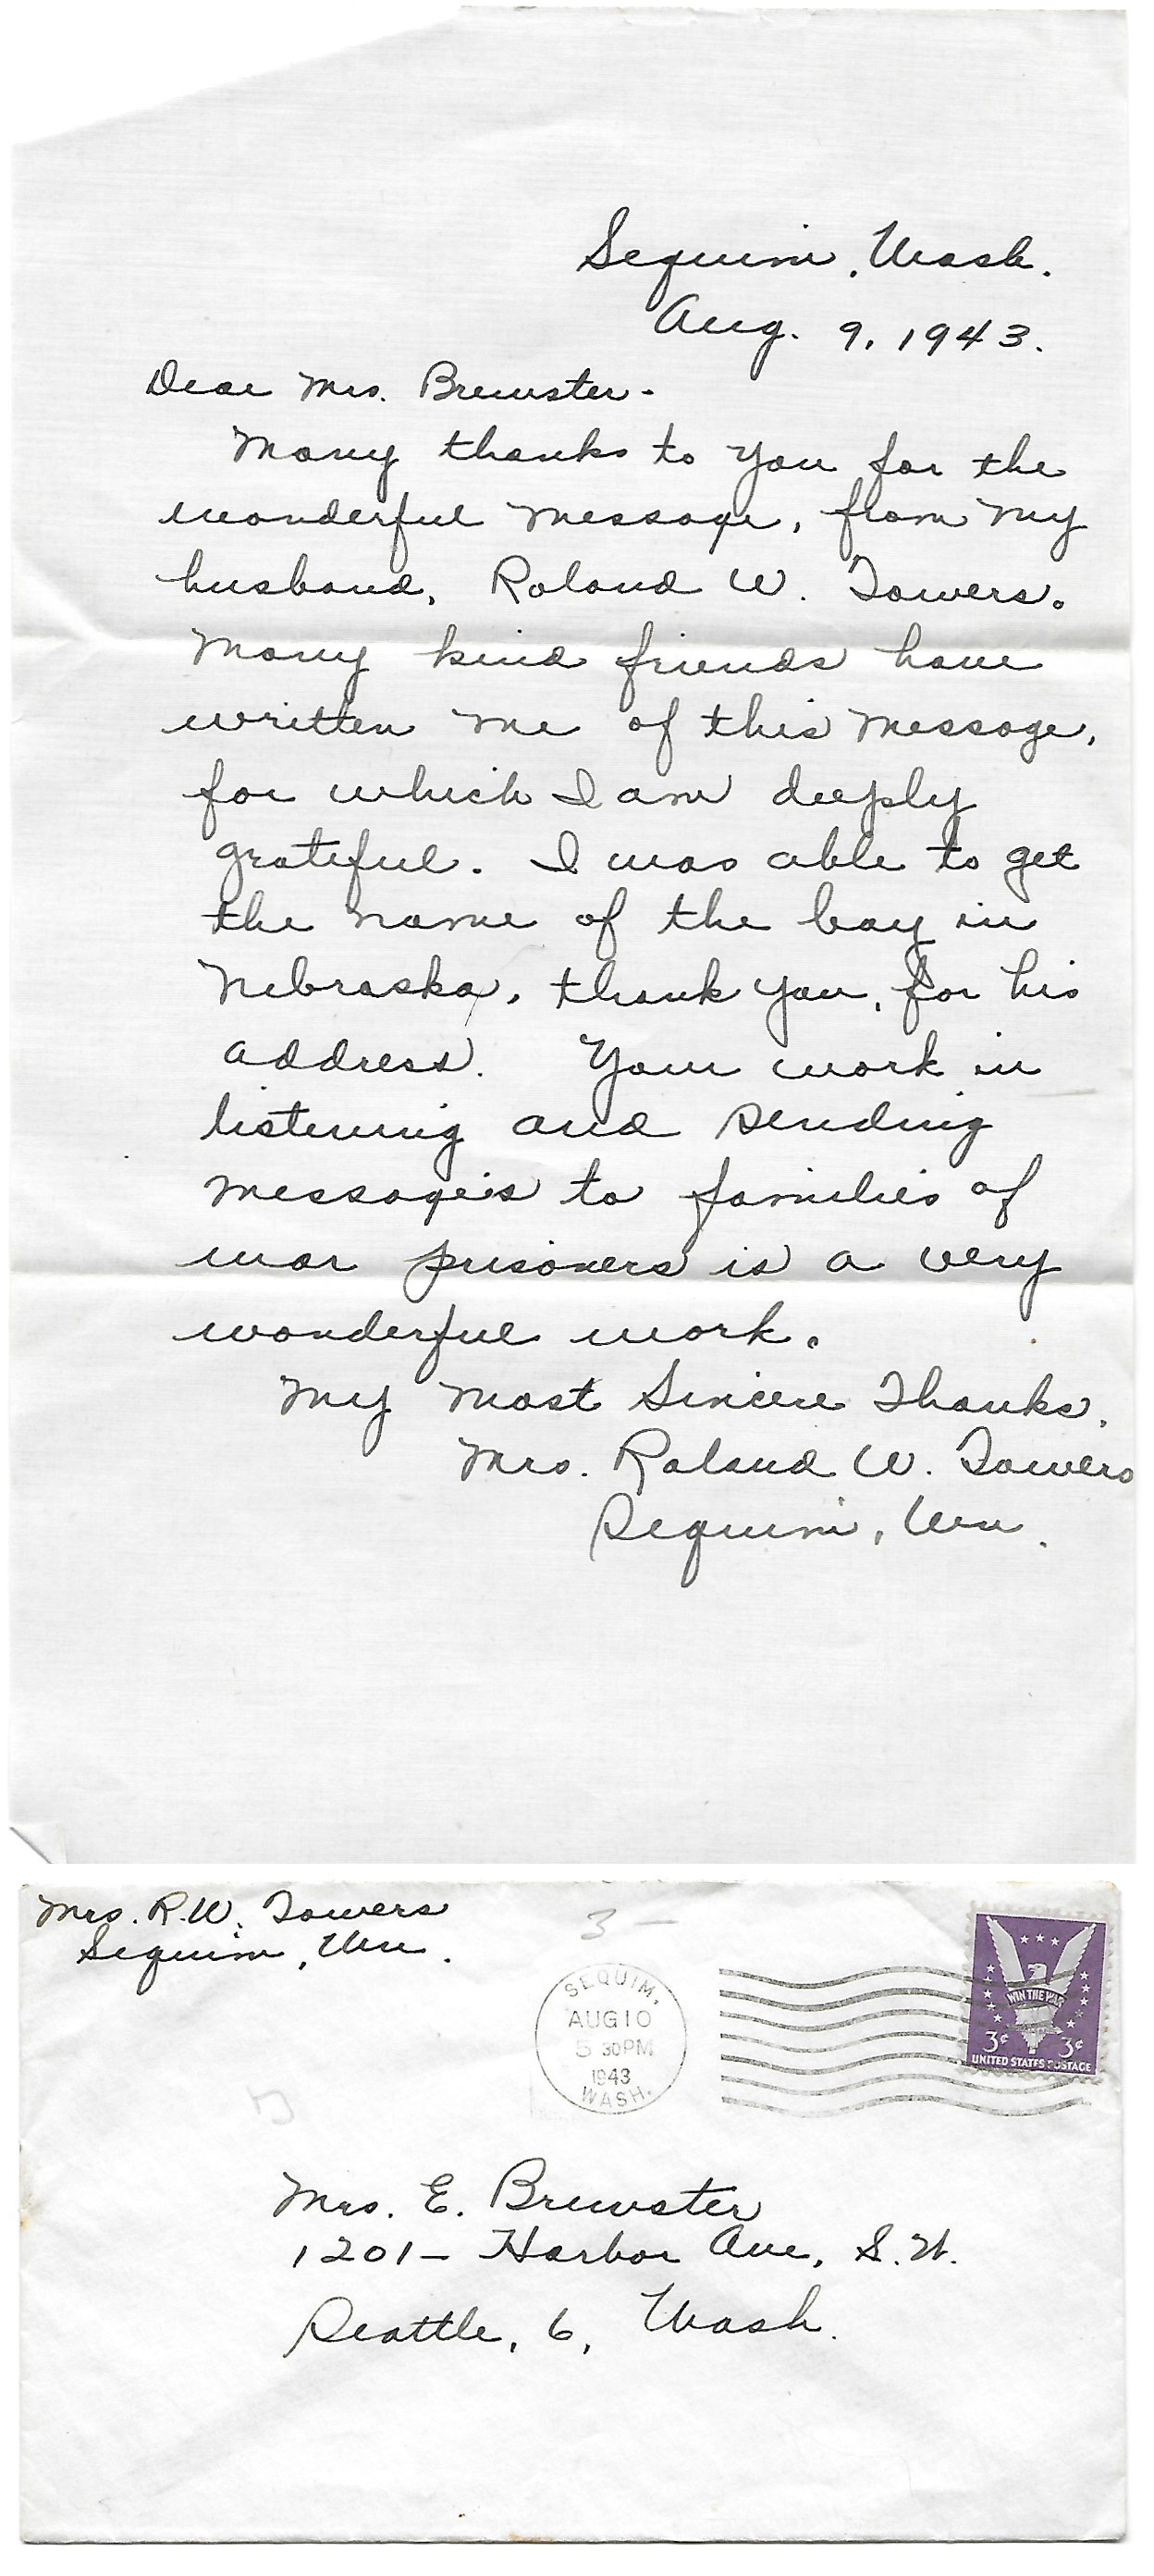 Sequim, Wash.
Aug. 9, 1943.
Dear Mrs. Brewster-
Many thanks to you for the
wonderful message, from my
husband, Roland W. Towers.
Many kind friends have
written me of this message,
for which I am deeply
grateful. I was able to get
the name of the boy in
Nebraska, thank you, for his
address. Your work in
listening and sending
messages to families of
war prisoners is a very
wonderful work.
My most Sincere Thanks.
Mrs. Roland W. Towers
Sequim, Wn.
Mrs. R.W. Towers
Sequim, Wn.
3 -
SEQUIM,
AUG 10
5 30 PM
1943
WASH.
WIN THE WAR
3¢ 3¢
UNITED STATES POSTAGE
Mrs. E. Brewster
1201- Harbor Ave, S.W.
Seattle, 6, Wash.